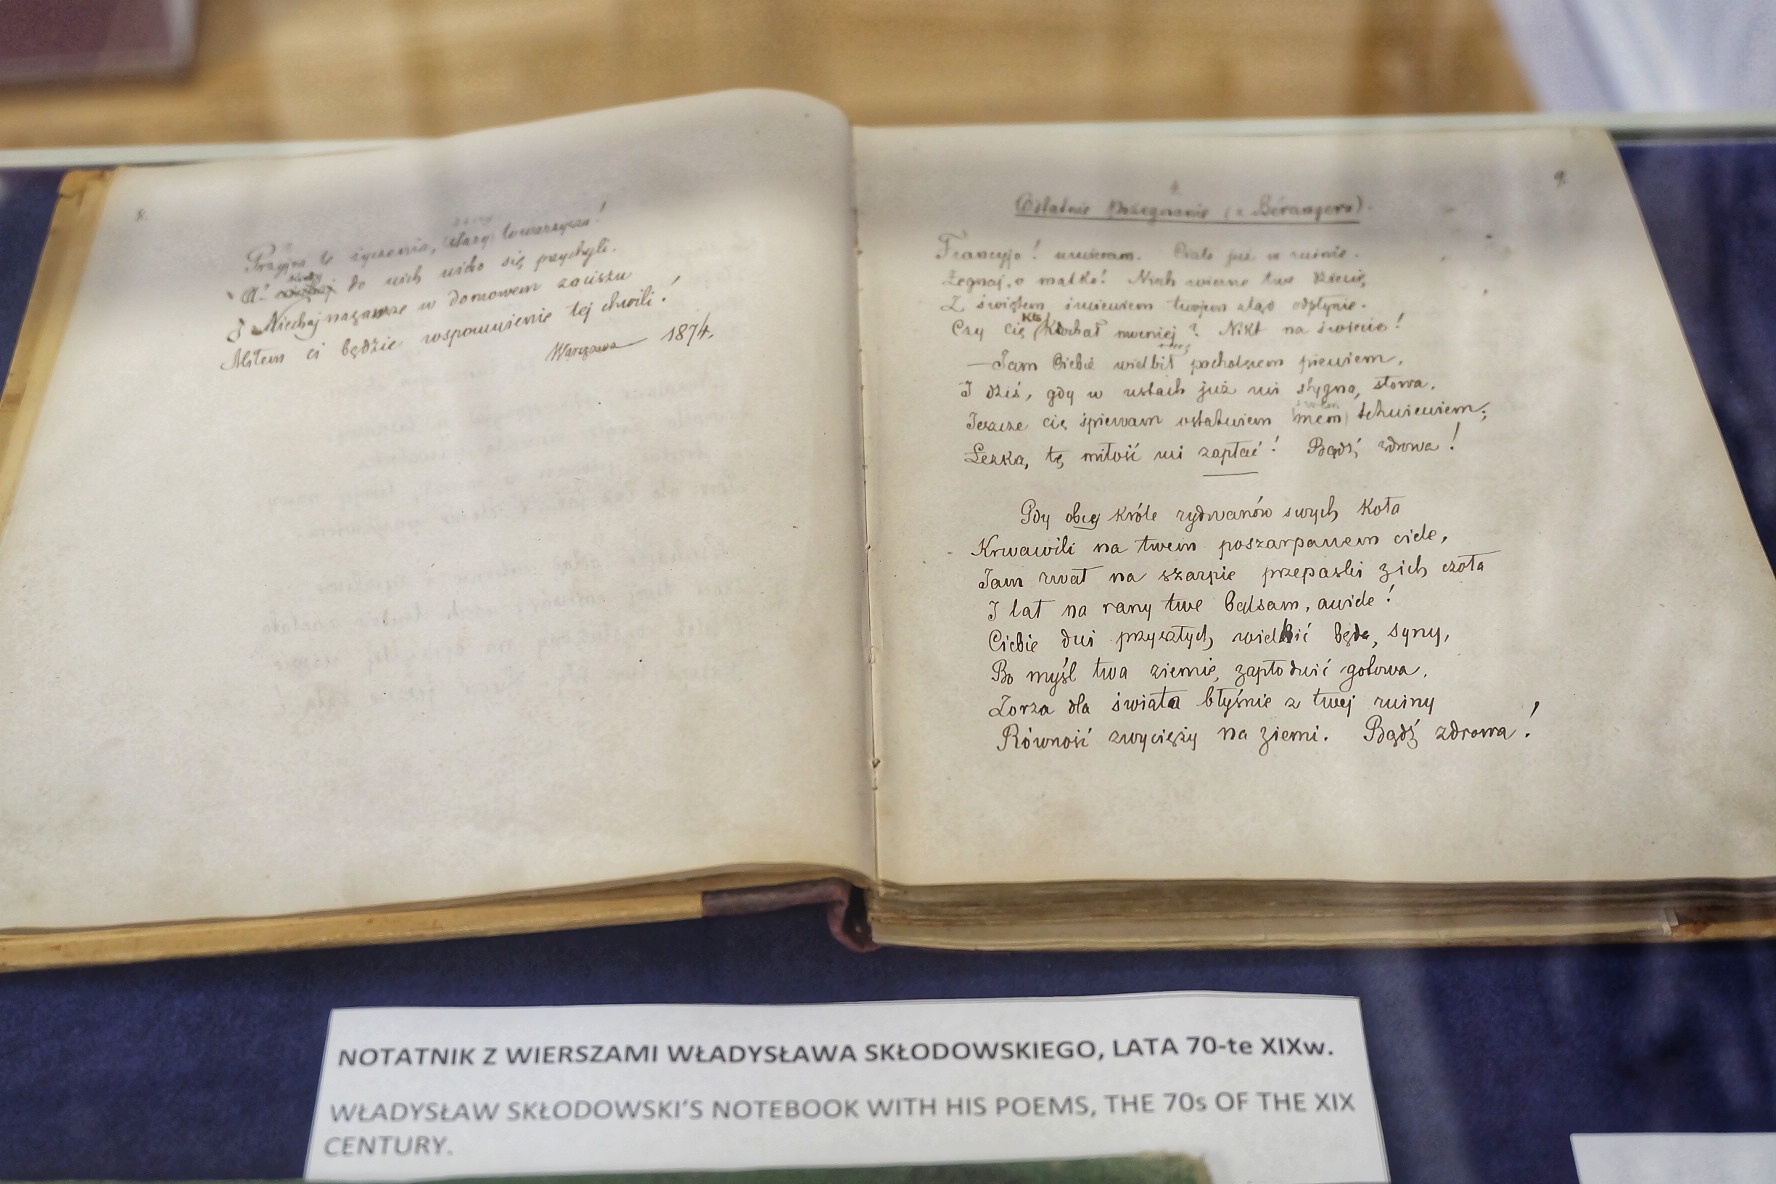 8.
Przyjm te życzenia, stary towarzyszu!
A! do nich ucho się przychyli.
I Niechaj nazawsze w domowem zaciszu
Miłem ci będzie wspomnienie tej chwili!
Warszawa 1874.
9.
9.
Ostatnie Pożegnanie (z Bérangera).
Francyjo! umieram. już w ruinie.
Żegnaj, o matko! Niech wierne twe dziecię
Z świętem imieniem twojem ztąd odpłynie.
Czy cię kto kochał mocniej? Nikt na świecie!
—Jam Ciebie wielbił pacholęcem pieniem,
I dziś, gdy w ustach już mi stygną słowa,
Jeszcze cię śpiewam ostatniem mem tchnieniem;
Łezką, tę miłość mi zapłać! Bądź zdrowa!
Gdy obcy króle rydwanów swych koła
Krwawili na twem poszarpanem ciele,
Jam rwał na szarpie przepaski z ich czoła
I lał na rany twe balsam, aniele!
Ciebie dni przyszłych wielbić będą syny,
Bo myśl twa ziemię zapłodnić gotowa.
Zorza dla świata błyśnie z twej ruiny
Równość zwycięży na ziemi. Bądź zdrowa!
NOTATNIK Z WIERSZAMI WŁADYSŁAWA SKŁODOWSKIEGO, LATA 70-te XIXw.
WŁADYSŁAW SKŁODOWSKI'S NOTEBOOK WITH HIS POEMS, THE 70s OF THE XIX
CENTURY.